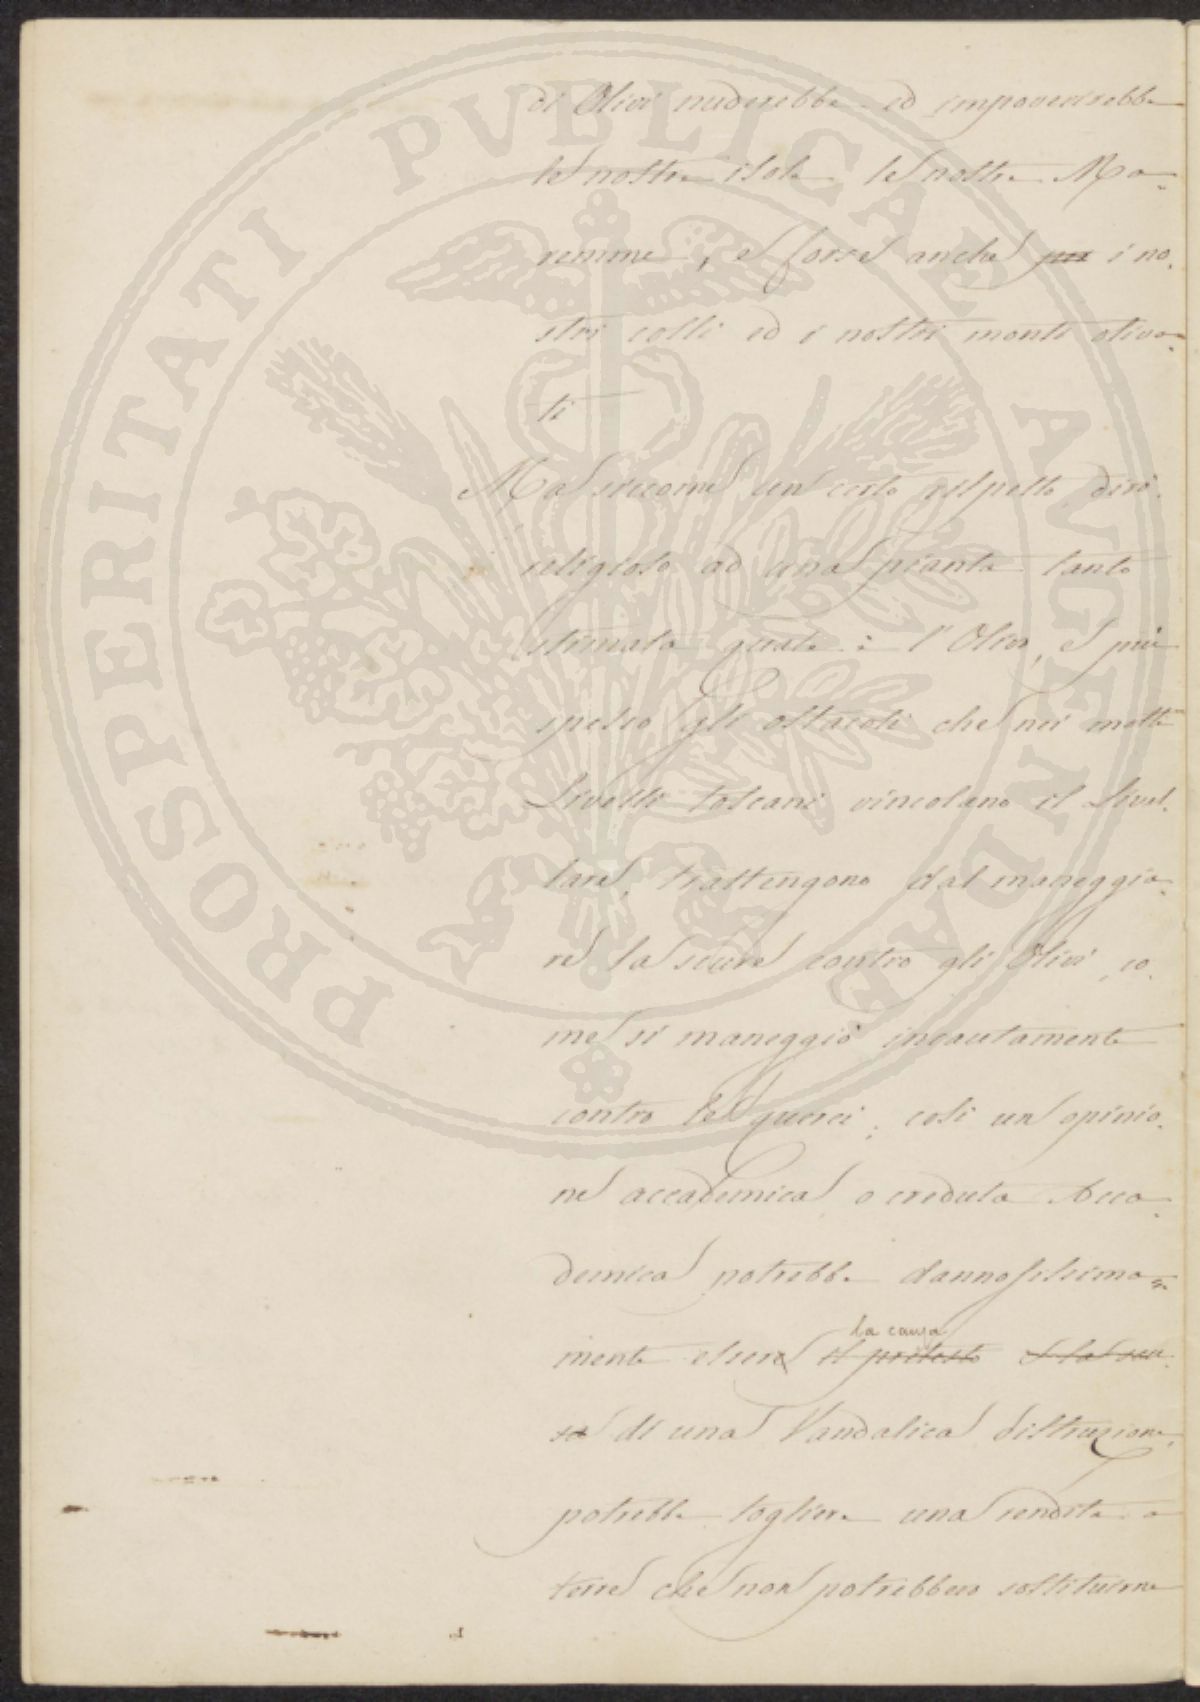 di Olivi nuderebbe ed impoverirebbe
le nostre isole le nostre Ma-
remme, e forse anche per i no-
stri colli ed i nostri monti oliva-
ti
Ma siccome un certo rispetto dirò
religioso ad una pianta tanto
stimata quale è l'Olivo, e più
spesso gli ostacoli che nei molti
Livelli toscani vincolano il Livel-
lare, trattengono dal maneggia-
re la scure contro gli Olivi, co-
me si maneggiò incautamente
contro le querci; così un opinio-
ne accademica o creduta Acca-
demica potrebbe dannosissima-
la causa
mente essere il pretesto e la scu-
sa di una Vandalica distruzione,
potrebbe togliere una rendita a
terre che non potrebbero sostituirne
PROSPERITATI PVBLICAE AVGENDAE